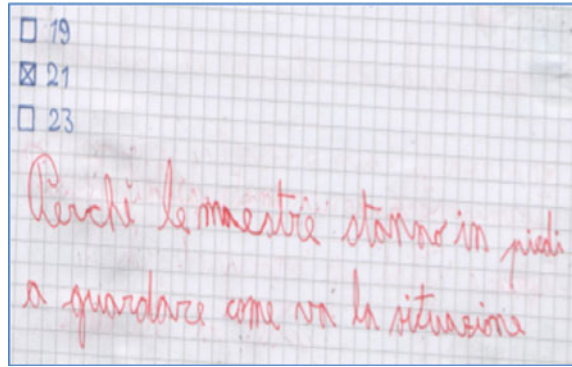 ☐ 19
☒ 21
☐ 23
Perchè le maestre stanno in piedi
a guardare come va la situazione